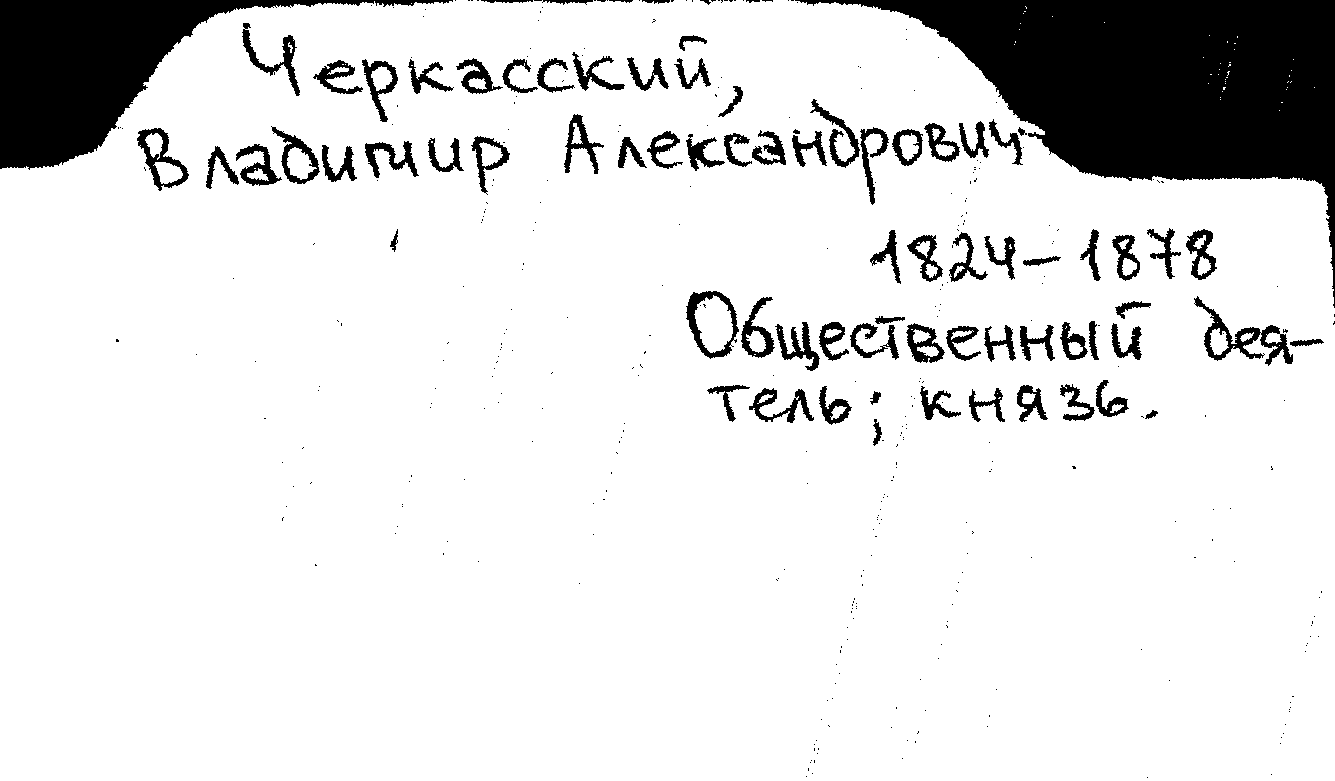 Черкасский,
Владимир Александрович
1824–1878
Общественный дея-
тель; князь.